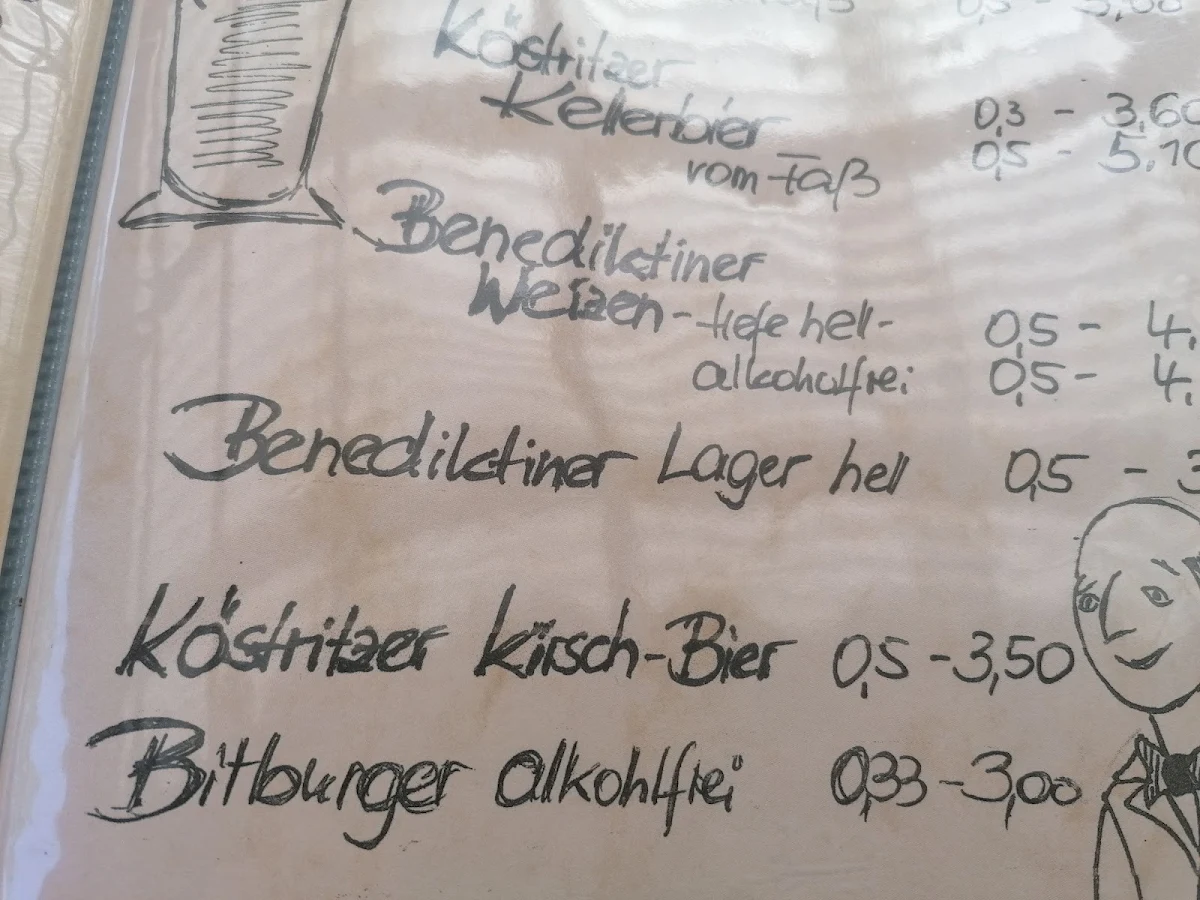 0,5 - 5,00
Köstritzer
Kellerbier 0,3 - 3,60
vom Faß 0,5 - 5,10
Benediktiner
Weizen - tiefe hell - 0,5 - 4,
alkoholfrei 0,5 - 4,
Benediktiner Lager hell 0,5 - 3
Köstritzer Kirsch-Bier 0,5 - 3,50
Bitburger alkohlfrei 0,33 - 3,00